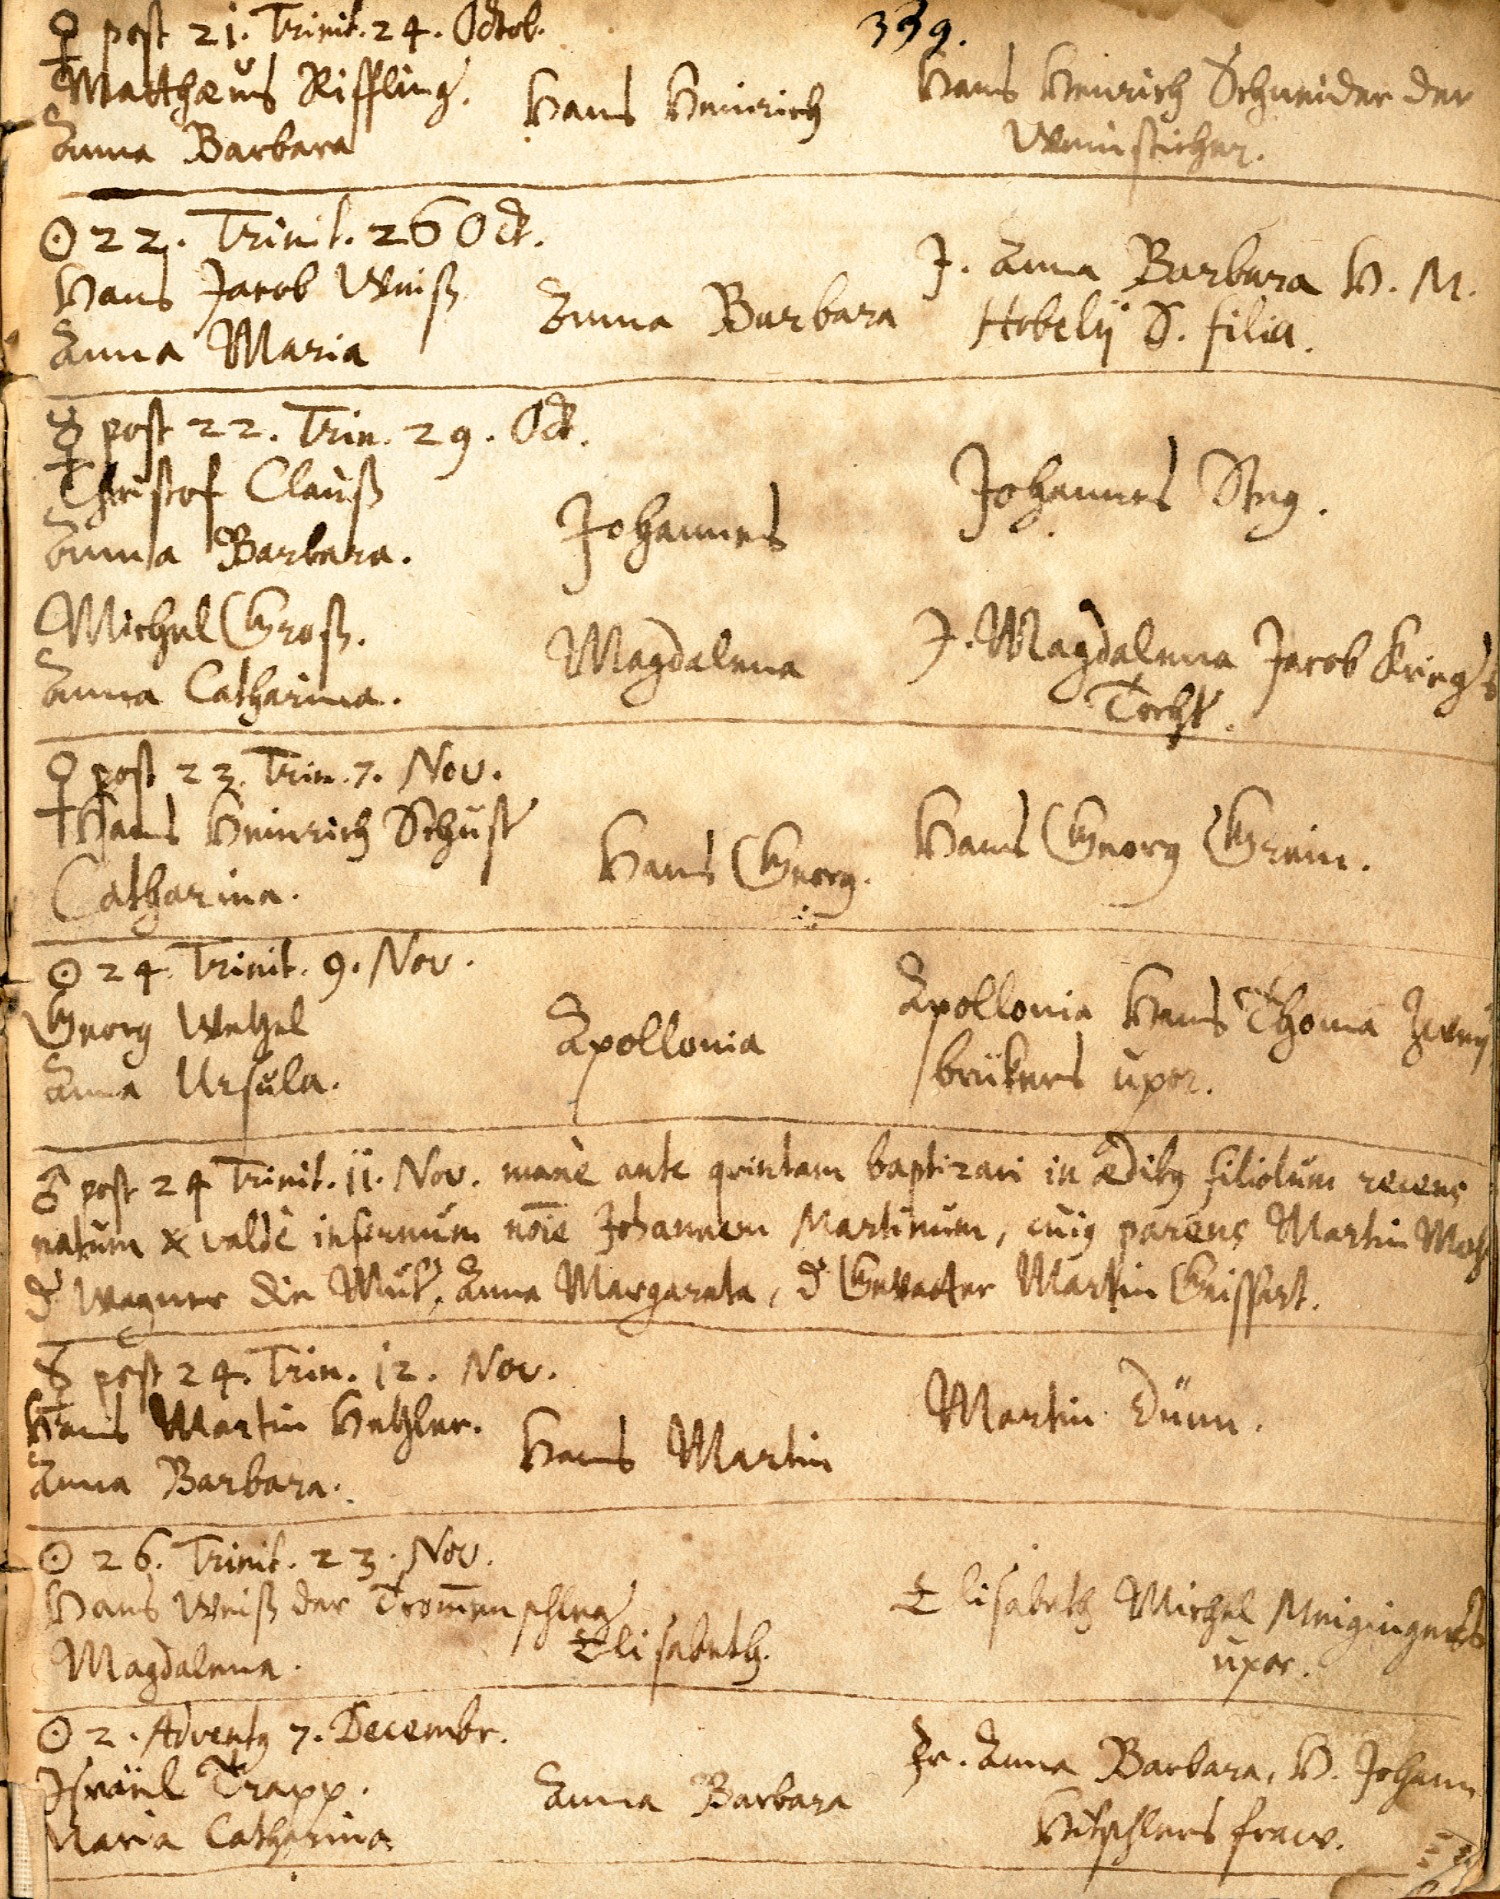 339.
♀ post 21. Trinit. 24. Octob.
Matthæus Riffling.
Anna Barbara
Hans Heinrich
Hans Heinrich Schneider der
Weinsticher.
☉ 22. Trinit. 26 Oct.
Hans Jacob Weiß
Anna Maria
Anna Barbara
J. Anna Barbara H. M.
Hobelij S. filia.
☿ post 22. Trin. 29. Oct.
Christof Clauß
Anna Barbara.
Johannes
Johannes Steg.
Michel Groß.
Anna Catharina.
Magdalena
J. Magdalena Jacob Kriegs
Tocht.
♀ post 23. Trin. 7. Nov.
Hans Heinrich Schust
Catharina.
Hans Georg.
Hans Georg Grein.
☉ 24. Trinit. 9. Nov.
Georg Wetzel
Anna Ursula.
Apollonia
Apollonia Hans Thoma Zweij
brükers uxor.
♂ post 24 Trinit. 11. Nov. mane ante quintam baptizavi in ædibꝰ filiolum recens
natum & valdè infirmum noīe Johannem Martinum, cujꝰ parens Martin
d. Wagner die Mut. Anna Margareta, d Gevatter Martin Geissert.
☿ post 24. Trin. 12. Nov.
Hans Martin Hetzler.
Anna Barbara.
Hans Martin
Martin Dünn.
☉ 26. Trinit. 23. Nov.
Hans Weiß der Trom̄enschleg
Magdalena.
Elisabeth.
Elisabeth Michel
uxor.
☉ 2. Adventꝰ 7. Decembr.
Israël Trapp.
Maria Catharina
Anna Barbara
Fr. Anna Barbara, H. Johann
fraw.